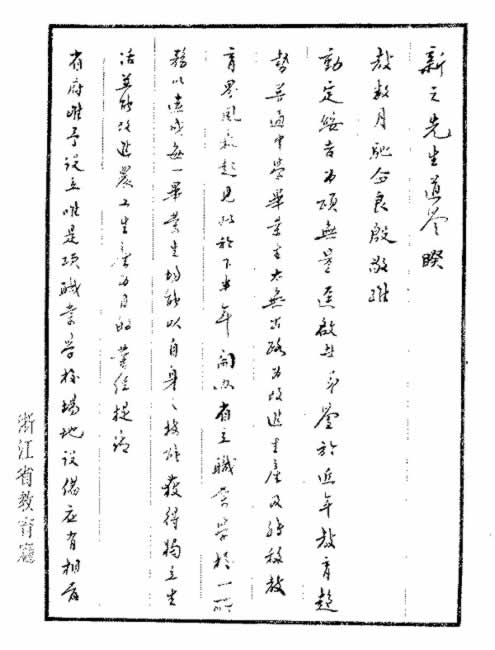 新之先生道鑒暌
教數月馳念良殷敬維
勛定綏吉為頌無量逕啟者弟鑒於近年教育趨
勢普通中學畢業生太無出路為改進生產及轉移教
育界風氣起見擬於下半年開辦省立職業學校一所
務以造成每一畢業生均能以自身之技能獲得獨立生
活並能改進農工生產為目的業經提請
省府准予設立惟是項職業學校場地設備應有相當
浙江省教育廳